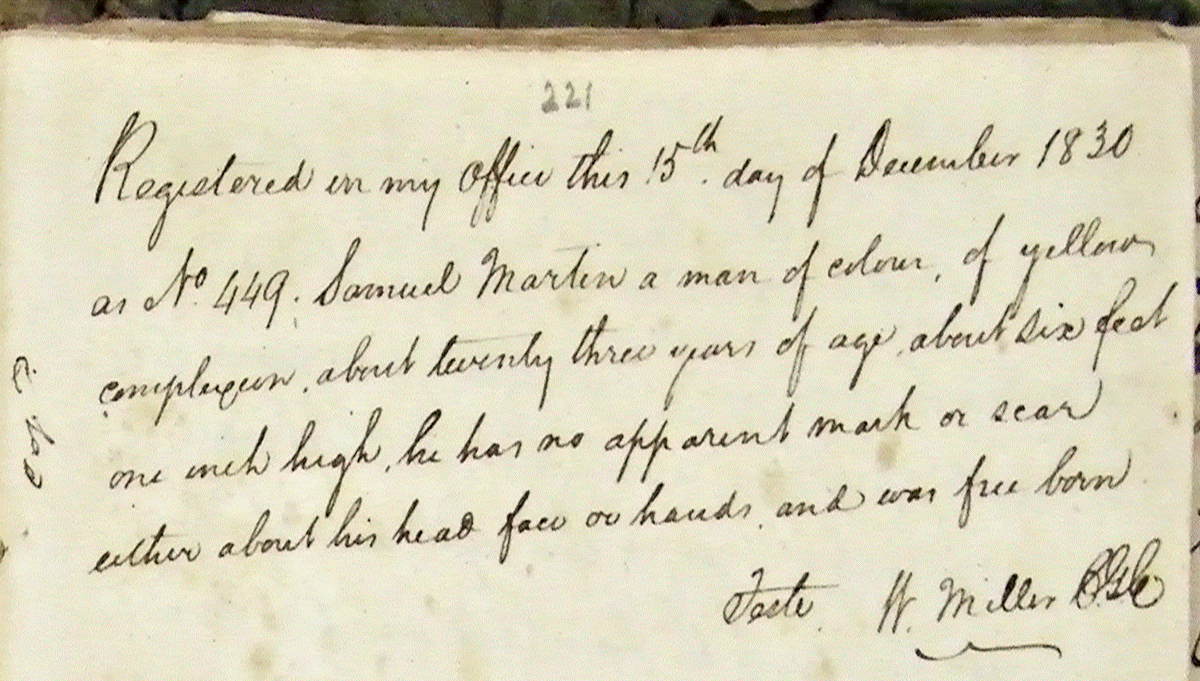 221
Registered in my Office this 15th. day of December 1830
as No. 449. Samuel Martin a man of colour, of yellow
complexion, about twenty three years of age, about six feet
one inch high, he has no apparent mark or scar
either about his head face or hands, and was free born
Teste. W. Miller